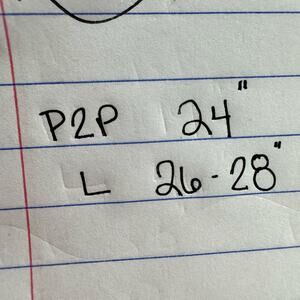 P2P 24"
L 26-28"